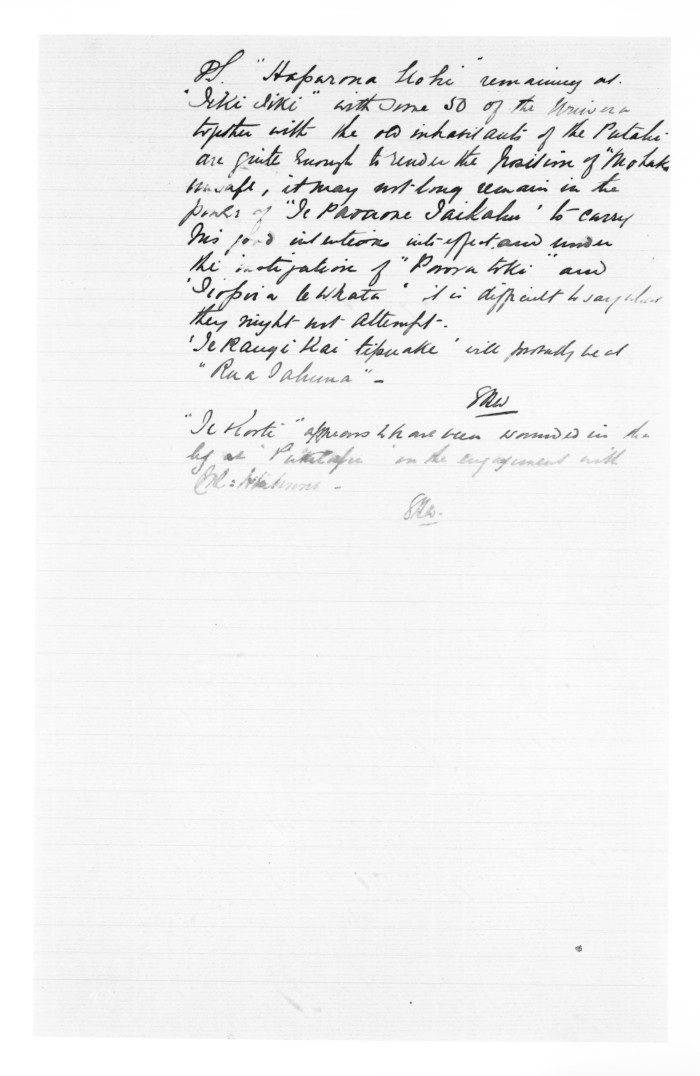 P.S. "Haparona Kohi" remaining at
"Tiki Tiki" with some 50 of the Urivera
together with the old inhabitants of the Putahi
are quite enough to render the position of "Mohaka
unsafe, it may not long remain in the
power of "Te Paerone Taikahu" to carry
his good intentions into effect and under
the instigation of "Porora toki" and
"Teopira te Whata" it is difficult to say what
they might not attempt.
'Te Rangi Kai tipuake' will probably be at
"Rua Tahuna" -
"Te Kooti" appears to have been wounded in the
leg at in the engagement with
Col: Whitmore -